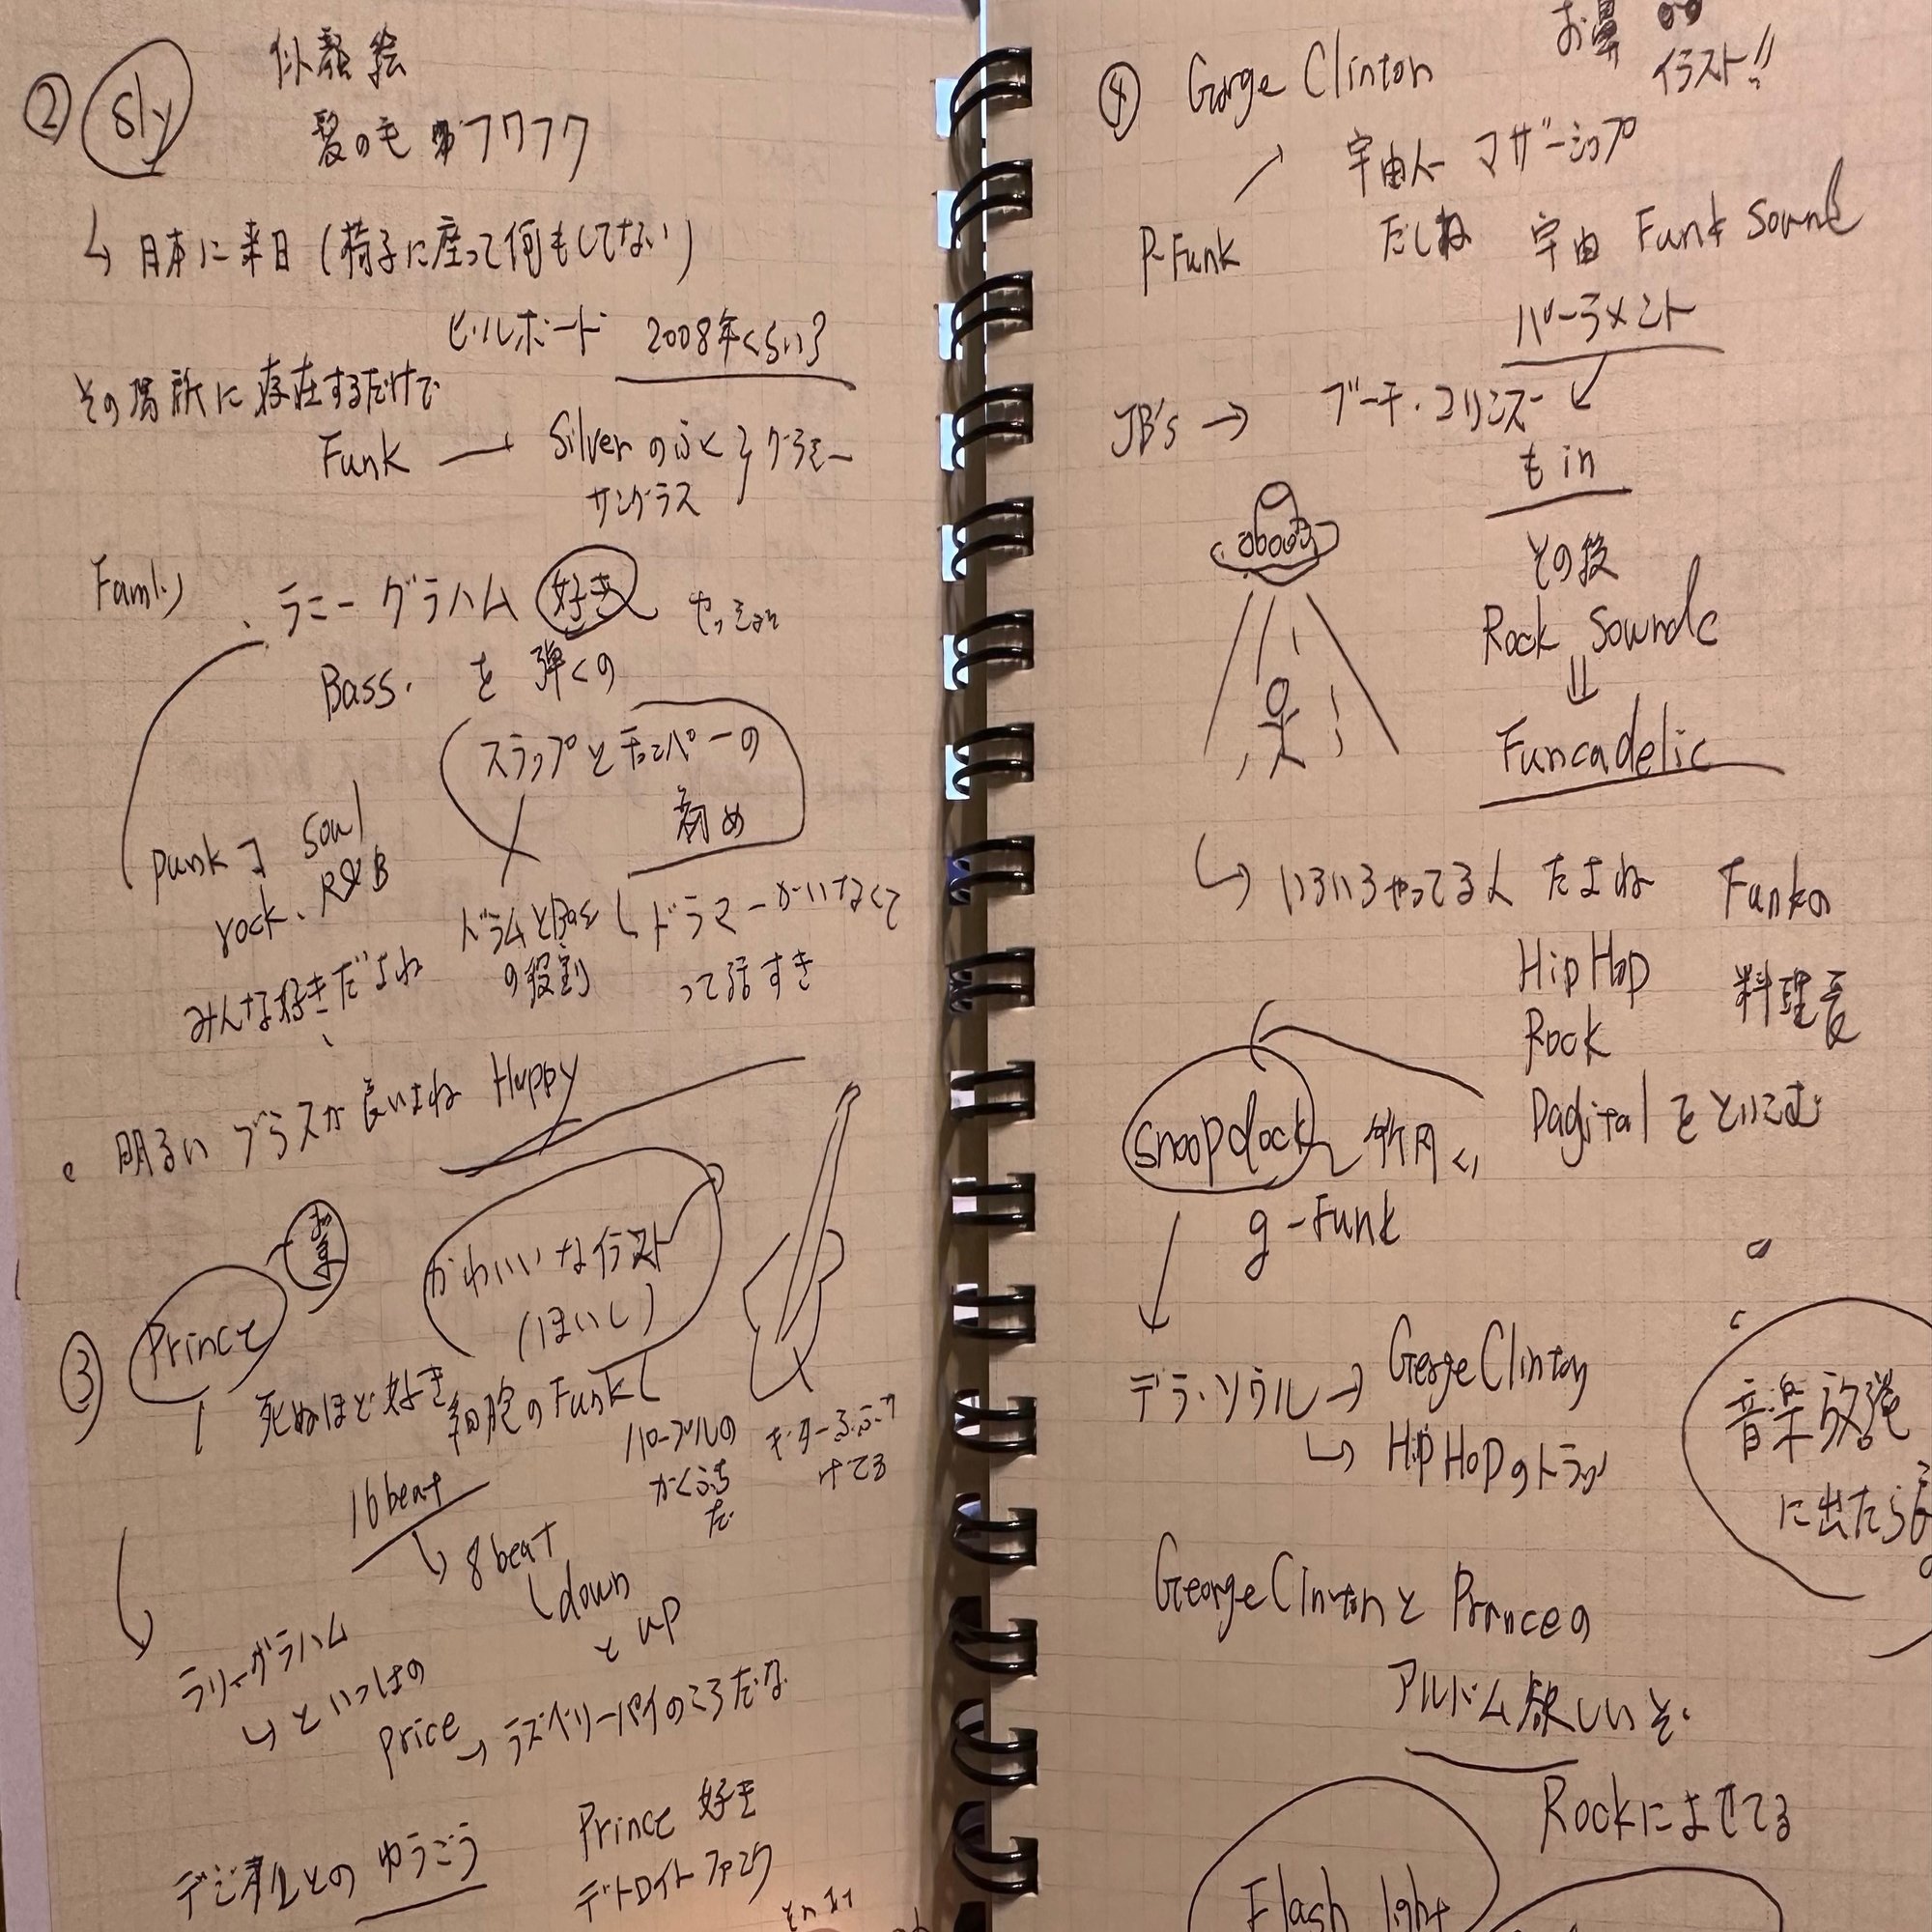 ② Sly 似顔絵
髪の毛がフワフワ
↳ 日本に来日 (椅子に座って何もしてない)
ビルボード 2008年くらい?
その場所に存在するだけで
Funk — Silver のふく
サングラス
Family
ラニーグラハム 好き
Bass. を 弾くの
スラップとチョッパーの
スラップ
punk soul
rock、R&B
みんな好きだよね
ドラムとBass
の役割
ドラマーがいなくて
って話すき
明るい ブラスが良いよね Happy
③ Prince
かわいいなイラスト
(ほしい)
死ぬほど好き 細胞のFunk
パープルの
がくぶち
だ
16beat
↳ 8beat
down
と up
ラリーグラハム
↳ といっしょの
price → ラズベリーパイのころだな
デジタルとの ゆうごう
Prince 好き
デトロイトファンク
お鼻
イラスト!!
④ Gorge Clinton
宇宙人 マザーシップ
P-Funk だしね 宇宙 Funk Sound
パーラメント
JB's → ブーチ・コリンズー
も in
その後
Rock Sound
⇓
Funcadelic
↳ いろいろやってる人 だよね
Funkの
料理長
HipHop
Rock
Dagital をといこむ
Snoopdock
g-Funk
デラ・ソウル → Gerge Clinton
↳ HipHopのトラック
音楽放送
に出たら
George Clinton と Princeの
アルバム欲しいぞ.
Rockによせてる
Flash light